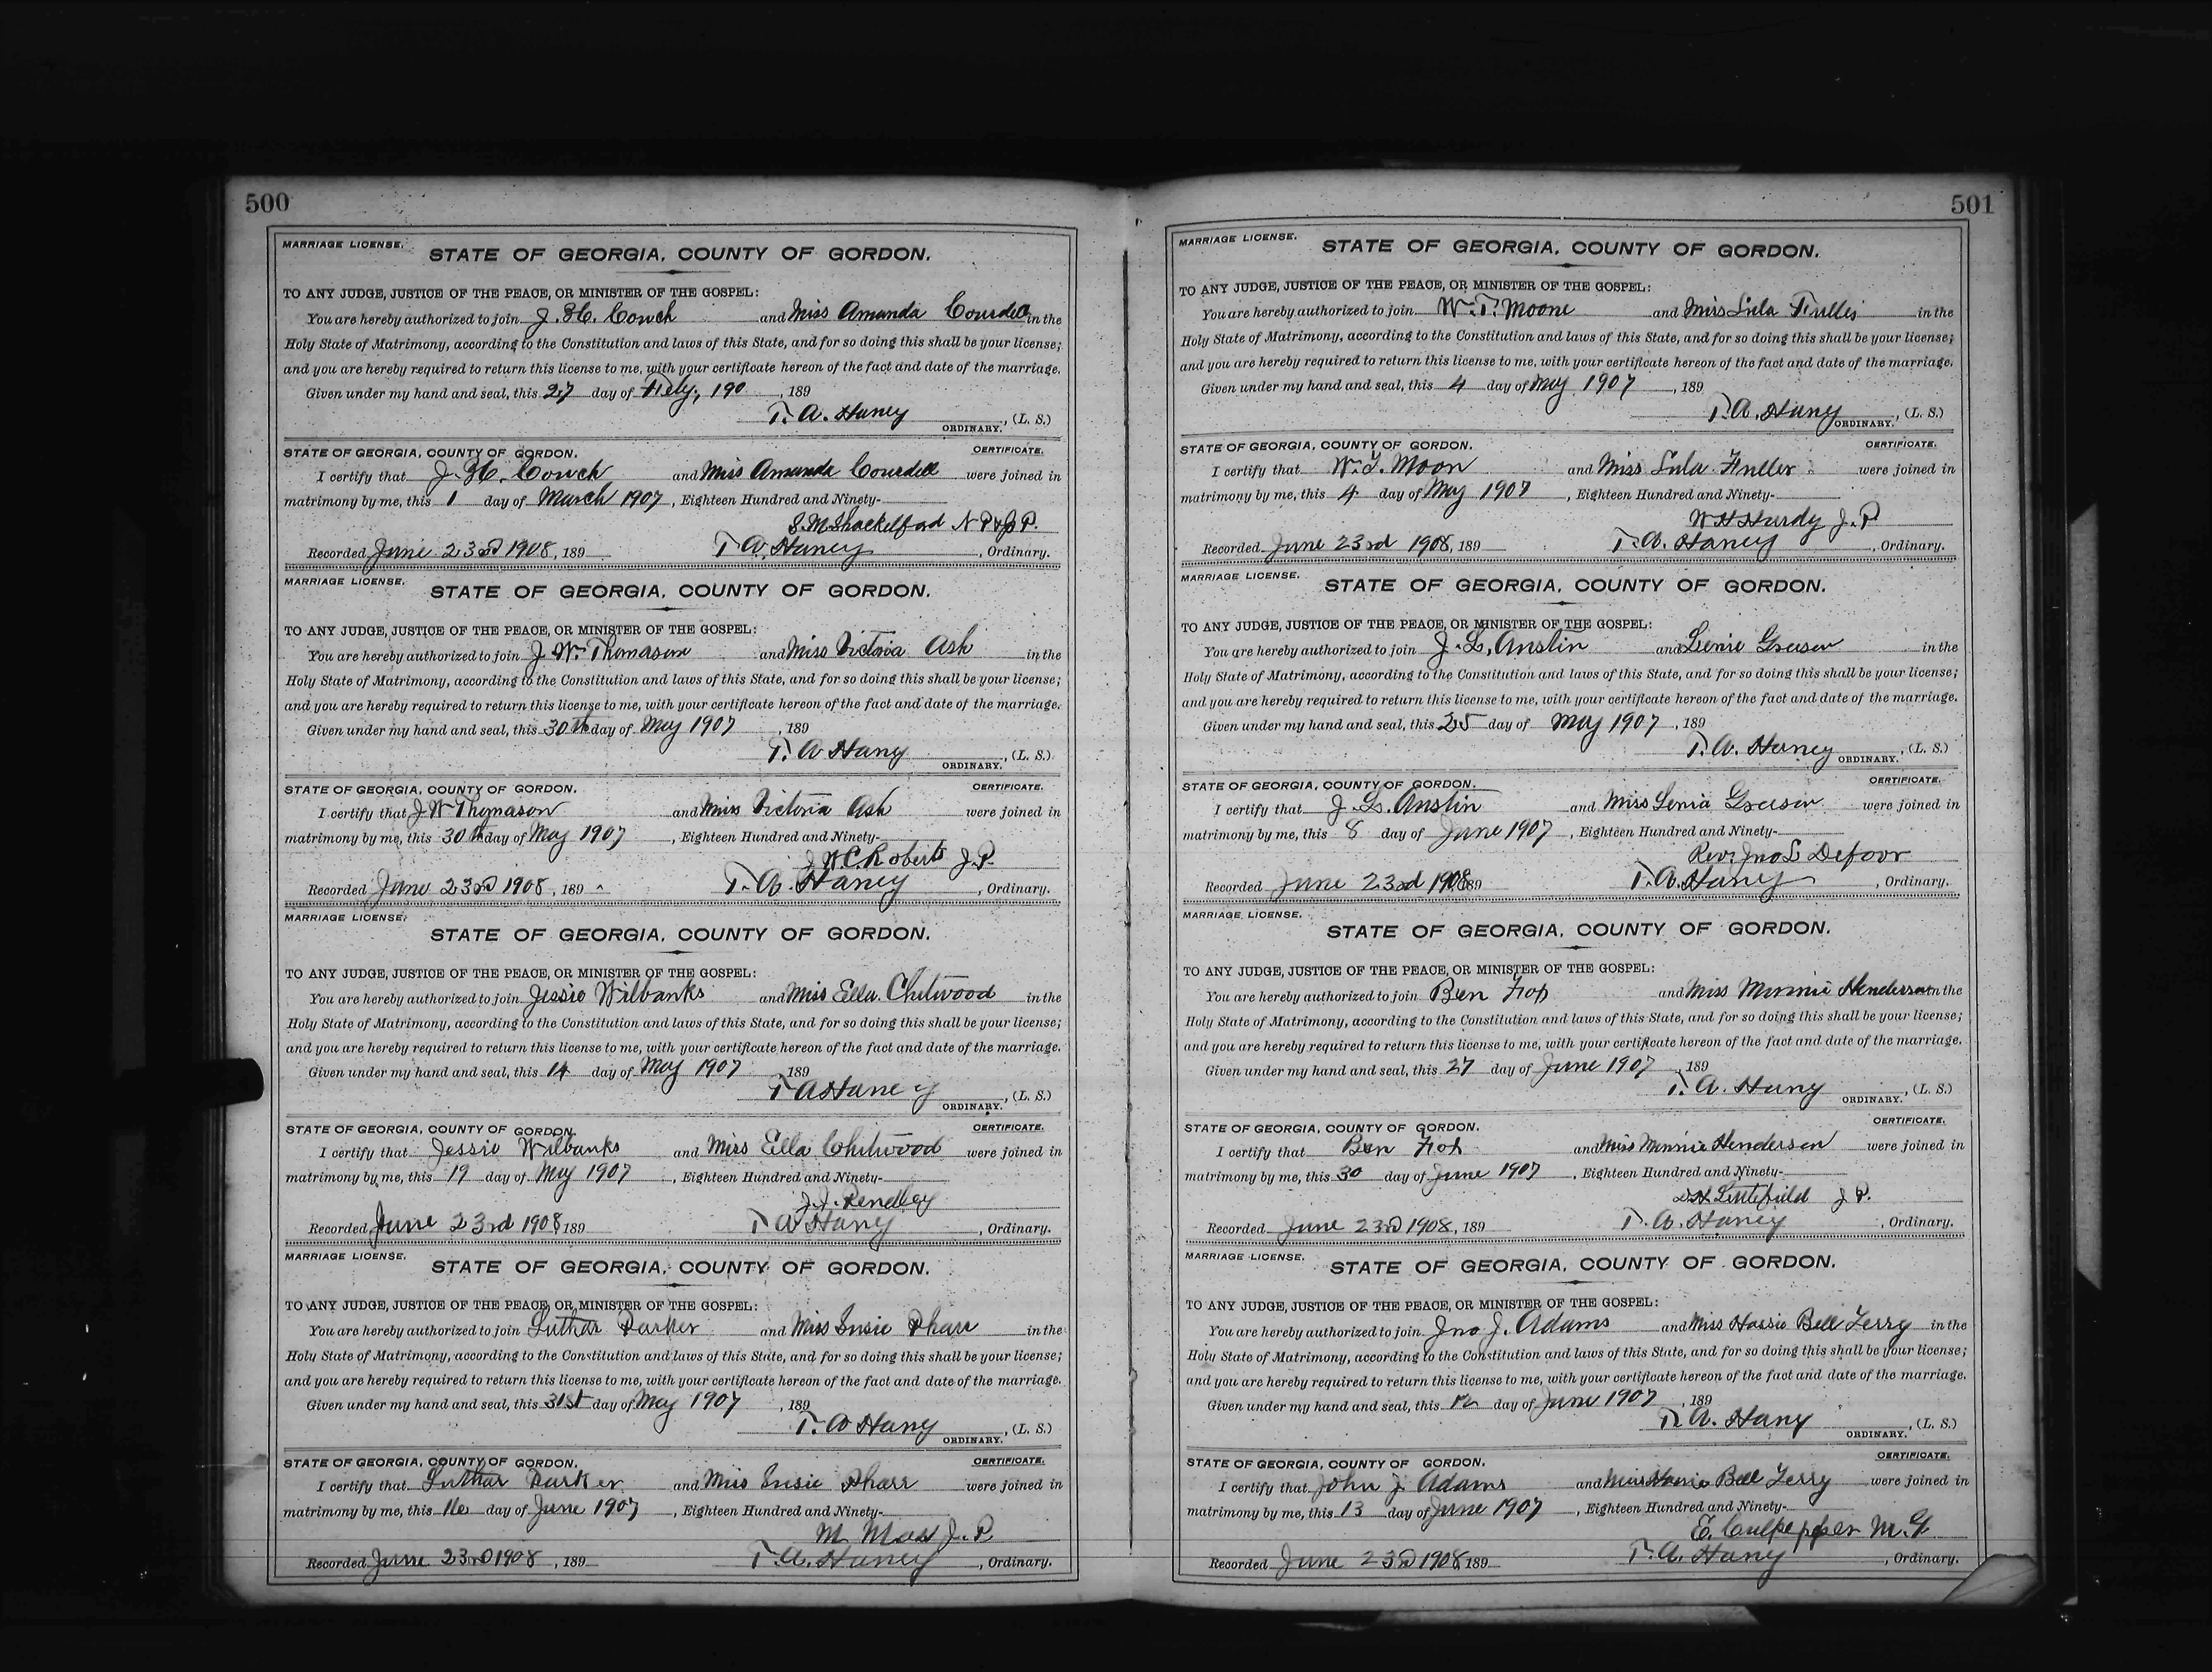 500
MARRIAGE LICENSE.
STATE OF GEORGIA, COUNTY OF GORDON.
TO ANY JUDGE, JUSTICE OF THE PEACE, OR MINISTER OF THE GOSPEL:
You are hereby authorized to join J. H. Couch and Miss Amanda Courdell in the
Holy State of Matrimony, according to the Constitution and laws of this State, and for so doing this shall be your license;
and you are hereby required to return this license to me, with your certificate hereon of the fact and date of the marriage.
Given under my hand and seal, this 27 day of Feby, 190 , 189
T. A. Haney , (L. S.)
ORDINARY.
STATE OF GEORGIA, COUNTY OF GORDON. CERTIFICATE.
I certify that J. H. Couch and Miss Amanda Courdell were joined in
matrimony by me, this 1 day of March 1907, Eighteen Hundred and Ninety-
S. M. Shackelford N P & J P.
Recorded June 23rd 1908, 189 T A. Haney , Ordinary.
MARRIAGE LICENSE.
STATE OF GEORGIA, COUNTY OF GORDON.
TO ANY JUDGE, JUSTICE OF THE PEACE, OR MINISTER OF THE GOSPEL:
You are hereby authorized to join J W. Thomason and Miss Victoria Ash in the
Holy State of Matrimony, according to the Constitution and laws of this State, and for so doing this shall be your license;
and you are hereby required to return this license to me, with your certificate hereon of the fact and date of the marriage.
Given under my hand and seal, this 30th day of May 1907 , 189
T. A Hany , (L. S.)
ORDINARY.
STATE OF GEORGIA, COUNTY OF GORDON. CERTIFICATE.
I certify that J W Thomason and Miss Victoria Ash were joined in
matrimony by me, this 30th day of May 1907 , Eighteen Hundred and Ninety-
J W C Roberts J. P.
Recorded June 23rd 1908, 189 T. A. Haney , Ordinary.
MARRIAGE LICENSE.
STATE OF GEORGIA, COUNTY OF GORDON.
TO ANY JUDGE, JUSTICE OF THE PEACE, OR MINISTER OF THE GOSPEL:
You are hereby authorized to join Jessie Wilbanks and Miss Ella Chitwood in the
Holy State of Matrimony, according to the Constitution and laws of this State, and for so doing this shall be your license;
and you are hereby required to return this license to me, with your certificate hereon of the fact and date of the marriage.
Given under my hand and seal, this 14 day of May 1907 , 189
T A Haney , (L. S.)
ORDINARY.
STATE OF GEORGIA, COUNTY OF GORDON. CERTIFICATE.
I certify that Jessie Wilbanks and Miss Ella Chitwood were joined in
matrimony by me, this 19 day of May 1907 , Eighteen Hundred and Ninety-
J. J.
Recorded June 23rd 1908, 189 T A Hany , Ordinary.
MARRIAGE LICENSE.
STATE OF GEORGIA, COUNTY OF GORDON.
TO ANY JUDGE, JUSTICE OF THE PEACE, OR MINISTER OF THE GOSPEL:
You are hereby authorized to join Luthar Parker and Miss Susie Pharr in the
Holy State of Matrimony, according to the Constitution and laws of this State, and for so doing this shall be your license;
and you are hereby required to return this license to me, with your certificate hereon of the fact and date of the marriage.
Given under my hand and seal, this 31st day of May 1907 , 189
T. A Hany , (L. S.)
ORDINARY.
STATE OF GEORGIA, COUNTY OF GORDON. CERTIFICATE.
I certify that Luthar Parker and Miss Susie Pharr were joined in
matrimony by me, this 16 day of June 1907 , Eighteen Hundred and Ninety-
M. J. P.
Recorded June 23rd 1908 , 189 T. A. Haney , Ordinary.
501
MARRIAGE LICENSE.
STATE OF GEORGIA, COUNTY OF GORDON.
TO ANY JUDGE, JUSTICE OF THE PEACE, OR MINISTER OF THE GOSPEL:
You are hereby authorized to join W. T. Moone and Miss Lula in the
Holy State of Matrimony, according to the Constitution and laws of this State, and for so doing this shall be your license;
and you are hereby required to return this license to me, with your certificate hereon of the fact and date of the marriage.
Given under my hand and seal, this 4 day of May 1907 , 189
T. A. Hany , (L. S.)
ORDINARY.
STATE OF GEORGIA, COUNTY OF GORDON. CERTIFICATE.
I certify that W. T. Moon and Miss Lula Fuller were joined in
matrimony by me, this 4 day of May 1907 , Eighteen Hundred and Ninety-
W H Hardy J. P
Recorded June 23rd 1908, 189 T. A. Haney , Ordinary.
MARRIAGE LICENSE.
STATE OF GEORGIA, COUNTY OF GORDON.
TO ANY JUDGE, JUSTICE OF THE PEACE, OR MINISTER OF THE GOSPEL:
You are hereby authorized to join J. L. Austin and Lenie Greeson in the
Holy State of Matrimony, according to the Constitution and laws of this State, and for so doing this shall be your license;
and you are hereby required to return this license to me, with your certificate hereon of the fact and date of the marriage.
Given under my hand and seal, this 25 day of May 1907 , 189
T. A. Haney , (L. S.)
ORDINARY.
STATE OF GEORGIA, COUNTY OF GORDON. CERTIFICATE.
I certify that J. L. Austin and Miss Lenia Greeson were joined in
matrimony by me, this 8 day of June 1907 , Eighteen Hundred and Ninety-
Rev. Jno L Defoor
Recorded June 23rd 1908 189 T. A. Haney , Ordinary.
MARRIAGE LICENSE.
STATE OF GEORGIA, COUNTY OF GORDON.
TO ANY JUDGE, JUSTICE OF THE PEACE, OR MINISTER OF THE GOSPEL:
You are hereby authorized to join Ben Fox and Miss Minnie Henderson in the
Holy State of Matrimony, according to the Constitution and laws of this State, and for so doing this shall be your license;
and you are hereby required to return this license to me, with your certificate hereon of the fact and date of the marriage.
Given under my hand and seal, this 27 day of June 1907 , 189
T. A. Hany , (L. S.)
ORDINARY.
STATE OF GEORGIA, COUNTY OF GORDON. CERTIFICATE.
I certify that Ben Fox and Miss Minnie Henderson were joined in
matrimony by me, this 30 day of June 1907 , Eighteen Hundred and Ninety-
Littlefield J P.
Recorded June 23rd 1908, 189 T. A. Haney , Ordinary.
MARRIAGE LICENSE.
STATE OF GEORGIA, COUNTY OF GORDON.
TO ANY JUDGE, JUSTICE OF THE PEACE, OR MINISTER OF THE GOSPEL:
You are hereby authorized to join Jno J. Adams and Miss Hassie Bell Terry in the
Holy State of Matrimony, according to the Constitution and laws of this State, and for so doing this shall be your license;
and you are hereby required to return this license to me, with your certificate hereon of the fact and date of the marriage.
Given under my hand and seal, this 12 day of June 1907 , 189
T. A. Hany , (L. S.)
ORDINARY.
STATE OF GEORGIA, COUNTY OF GORDON. CERTIFICATE.
I certify that John J Adams and Miss Bell Terry were joined in
matrimony by me, this 13 day of June 1907 , Eighteen Hundred and Ninety-
E. Culpepper M. G.
Recorded June 23rd 1908, 189 T. A. Hany , Ordinary.